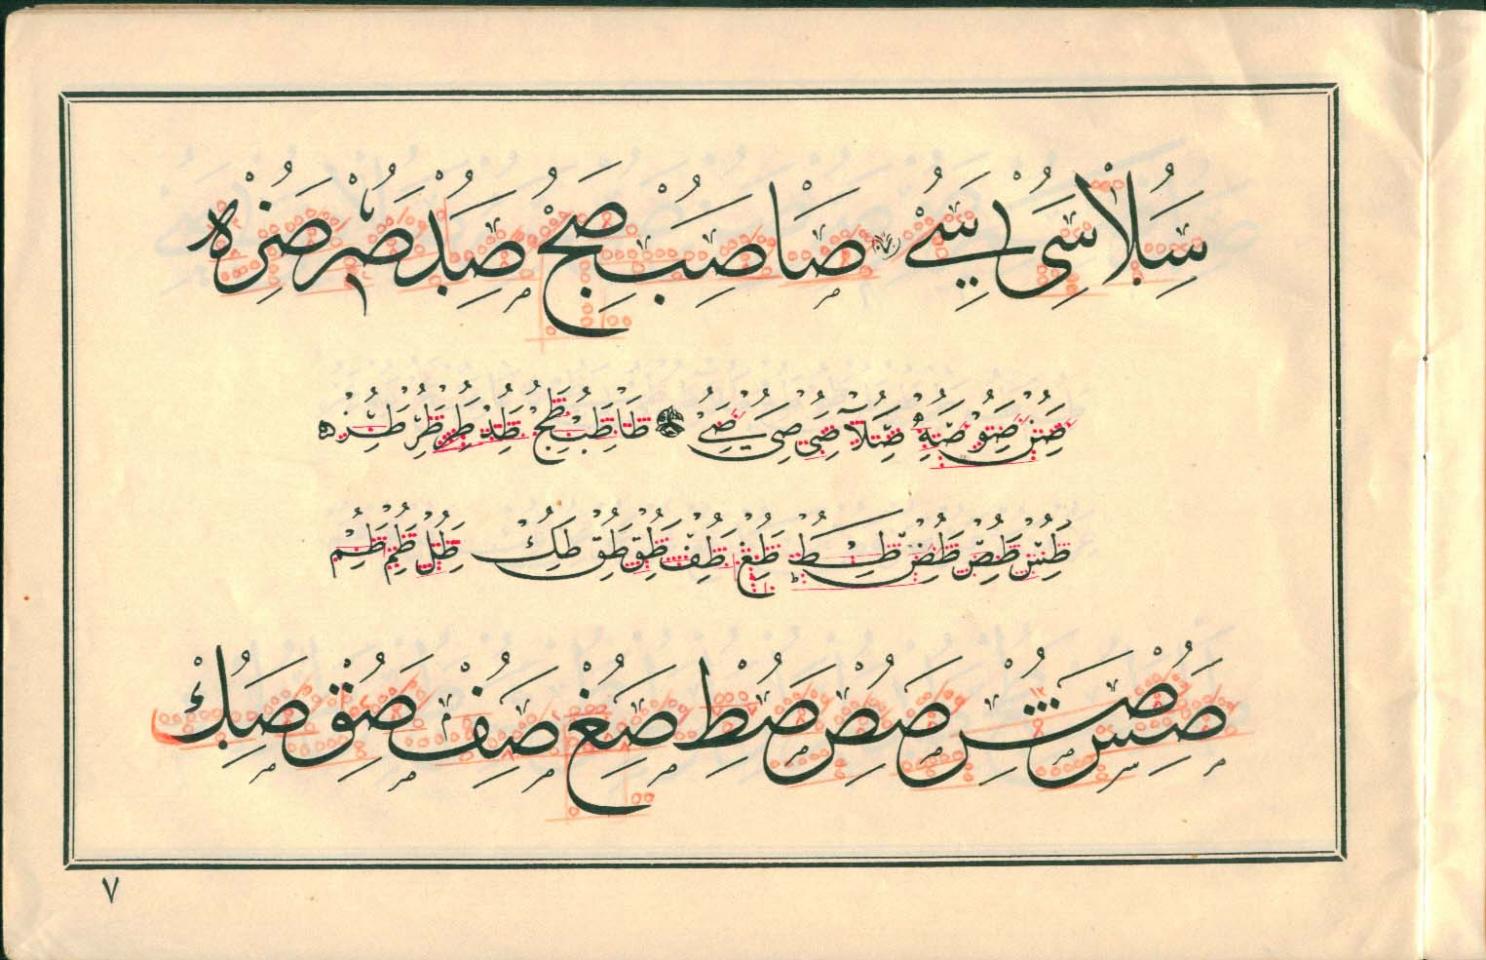 سلا سى سے صا صب صج صد صر صره
صن صو صه صلا صى صى صے طا طب طج طد طر طر طره
طس طص طض طط طغ طف طق طق طك طل طم طم
صس صش صص صض صط صغ صف صق صك
٧